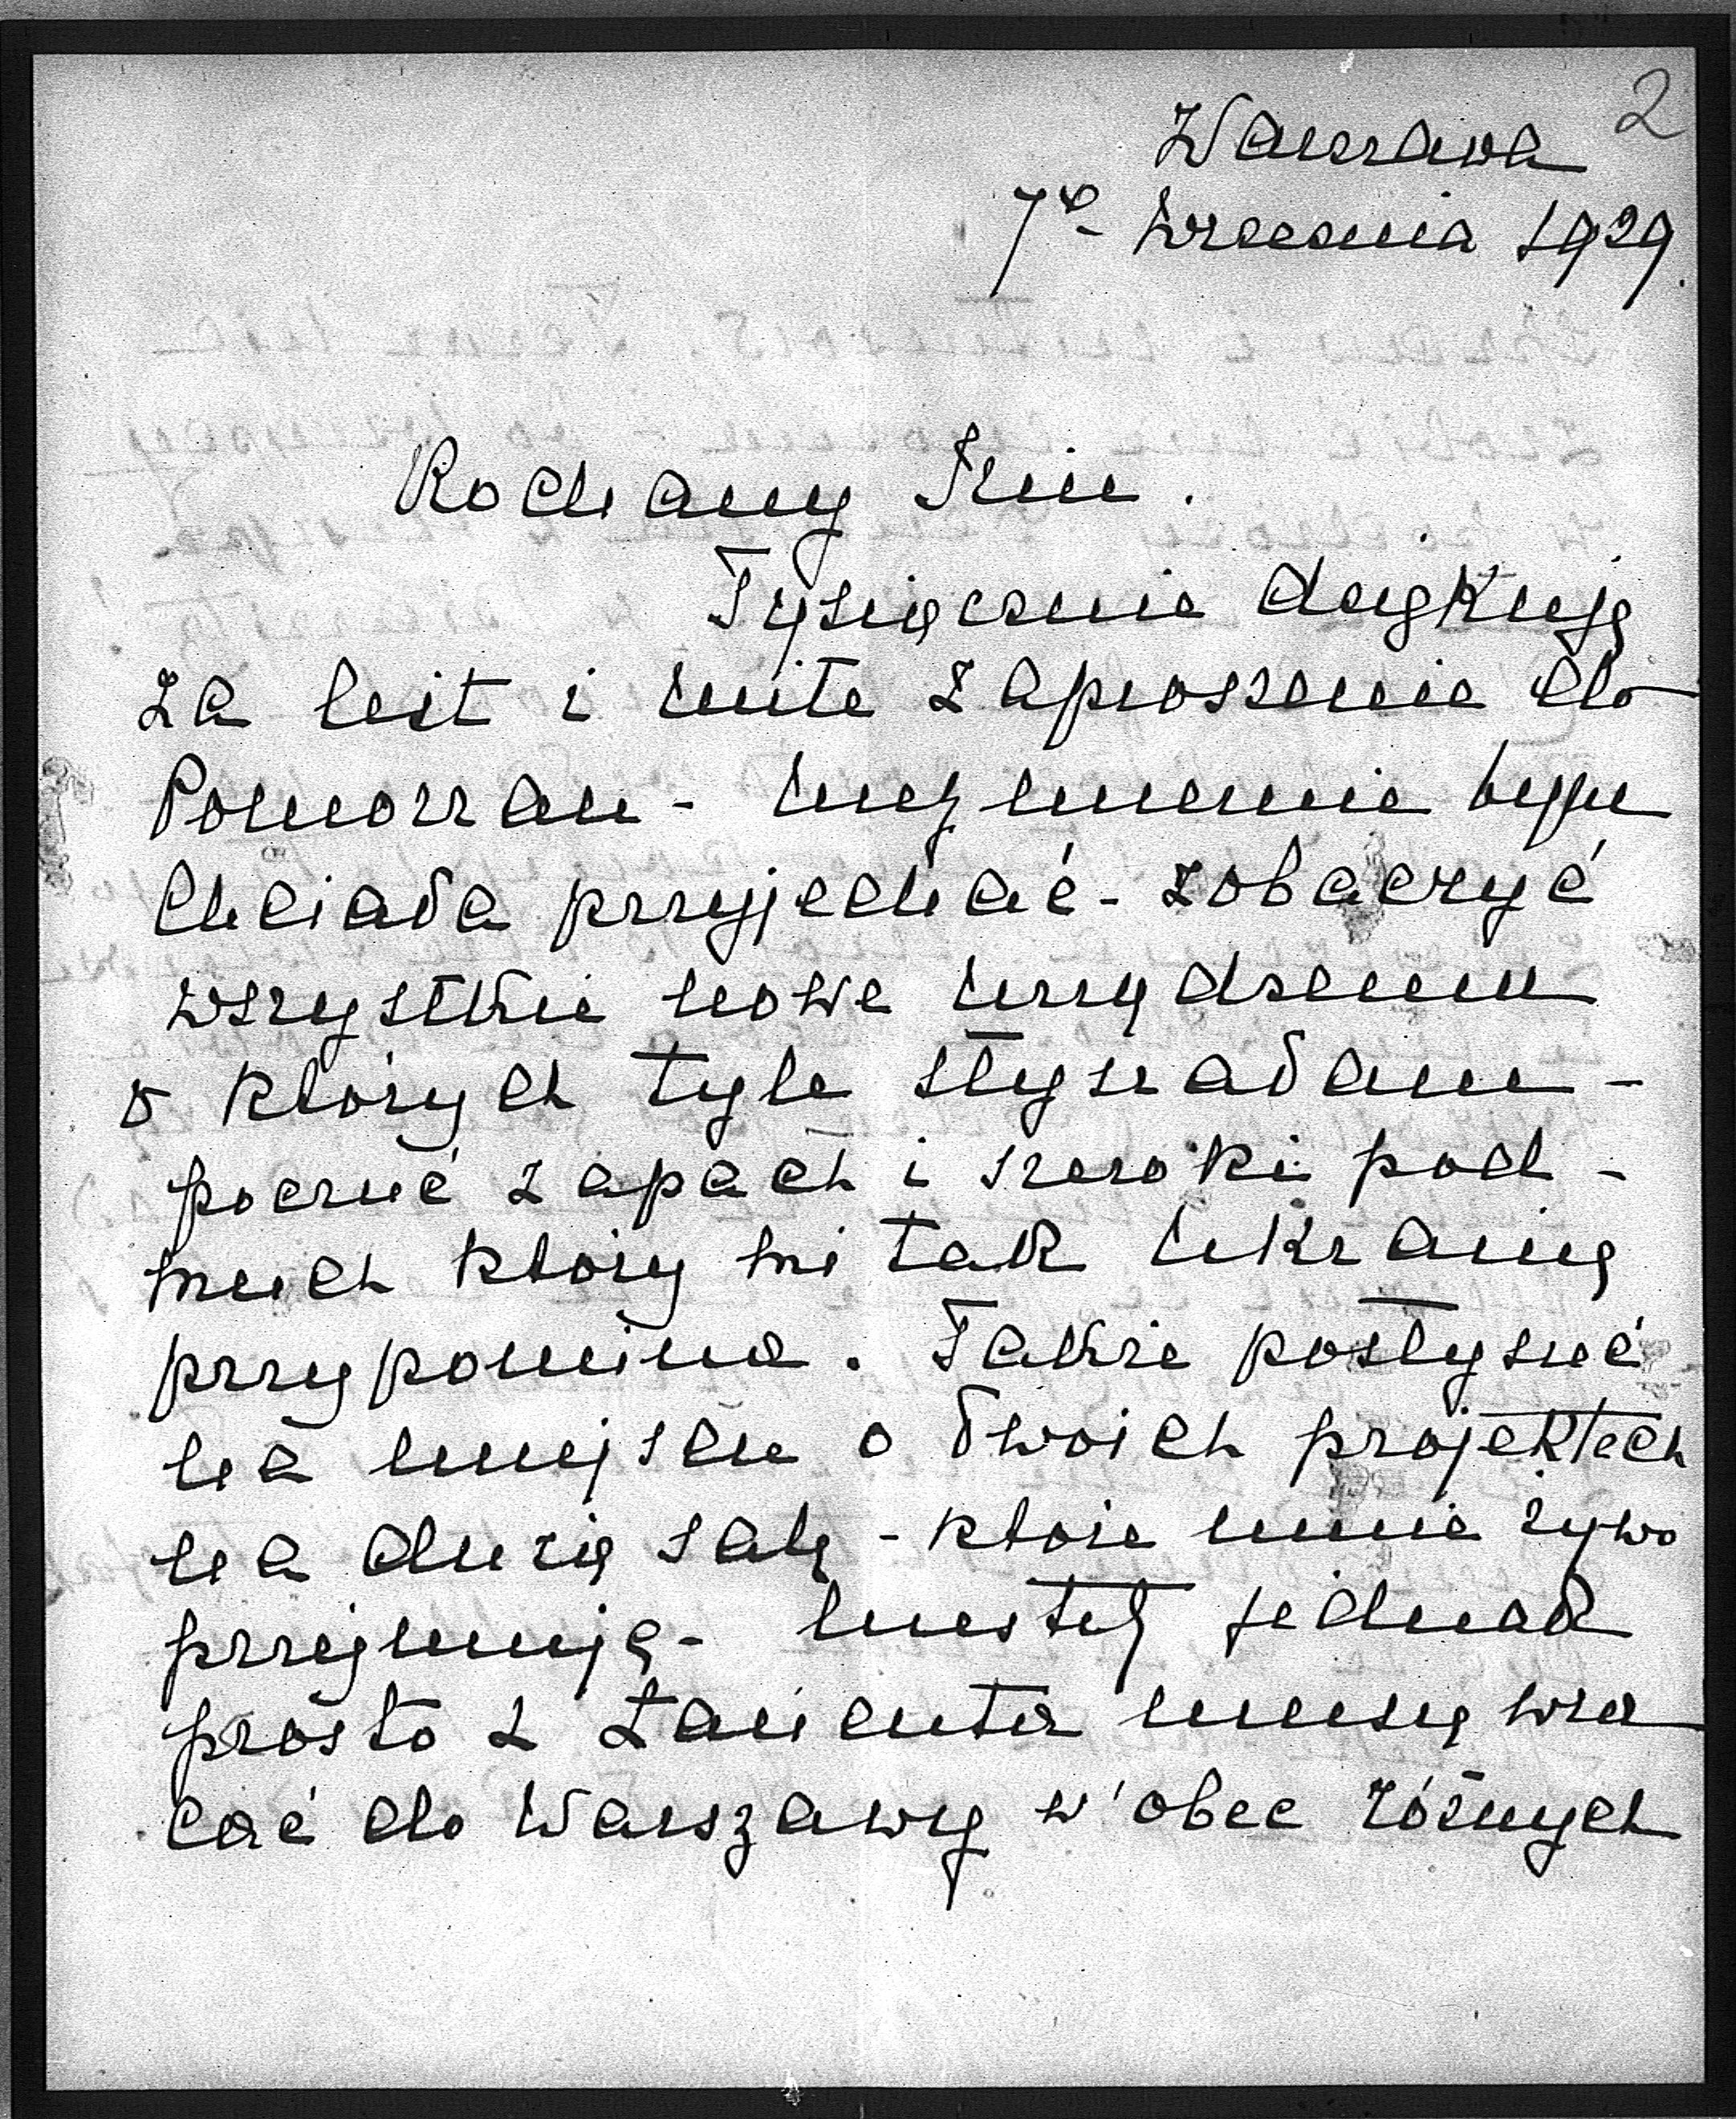 2
Warszawa
7go Września 1929.
Kochany
Tysiącznie dziękuję
za list i miłe zaproszenie do
Pomorzan - niezmiernie bym
chciała przyjechać - zobaczyć
wszystkie nowe urządzenia
o których tyle słyszałam -
poczuć zapach i szeroki pod-
much który mi tak Ukrainę
przypomina. Także posłyszeć
na miejscu o Twoich projektach
na dużą salę - które mnie żywo
przejmują - niestety jednak
prosto z Łańcuta muszę wra
cać do Warszawy w'obec różnych